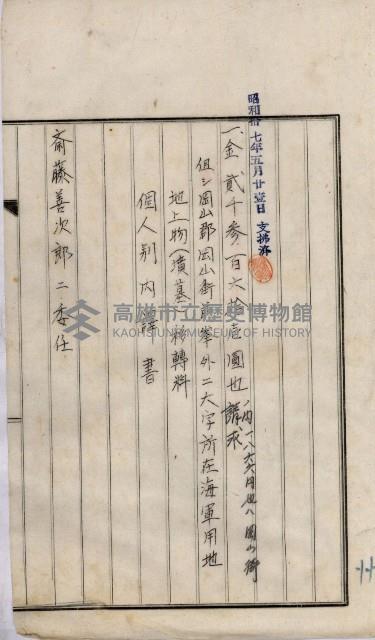 昭和拾七年五月廿壹日 支拂濟
一、金貳千參百六拾壹圓也 請求
内一八六六円也ハ岡山街
但シ岡山郡岡山街 外二大字所在海軍用地
地上物(墳墓)移轉料
個人別内譯書
齋藤善次郎ニ委任
高雄市立歷史博物館
KAOHSIUNG MUSEUM OF HISTORY